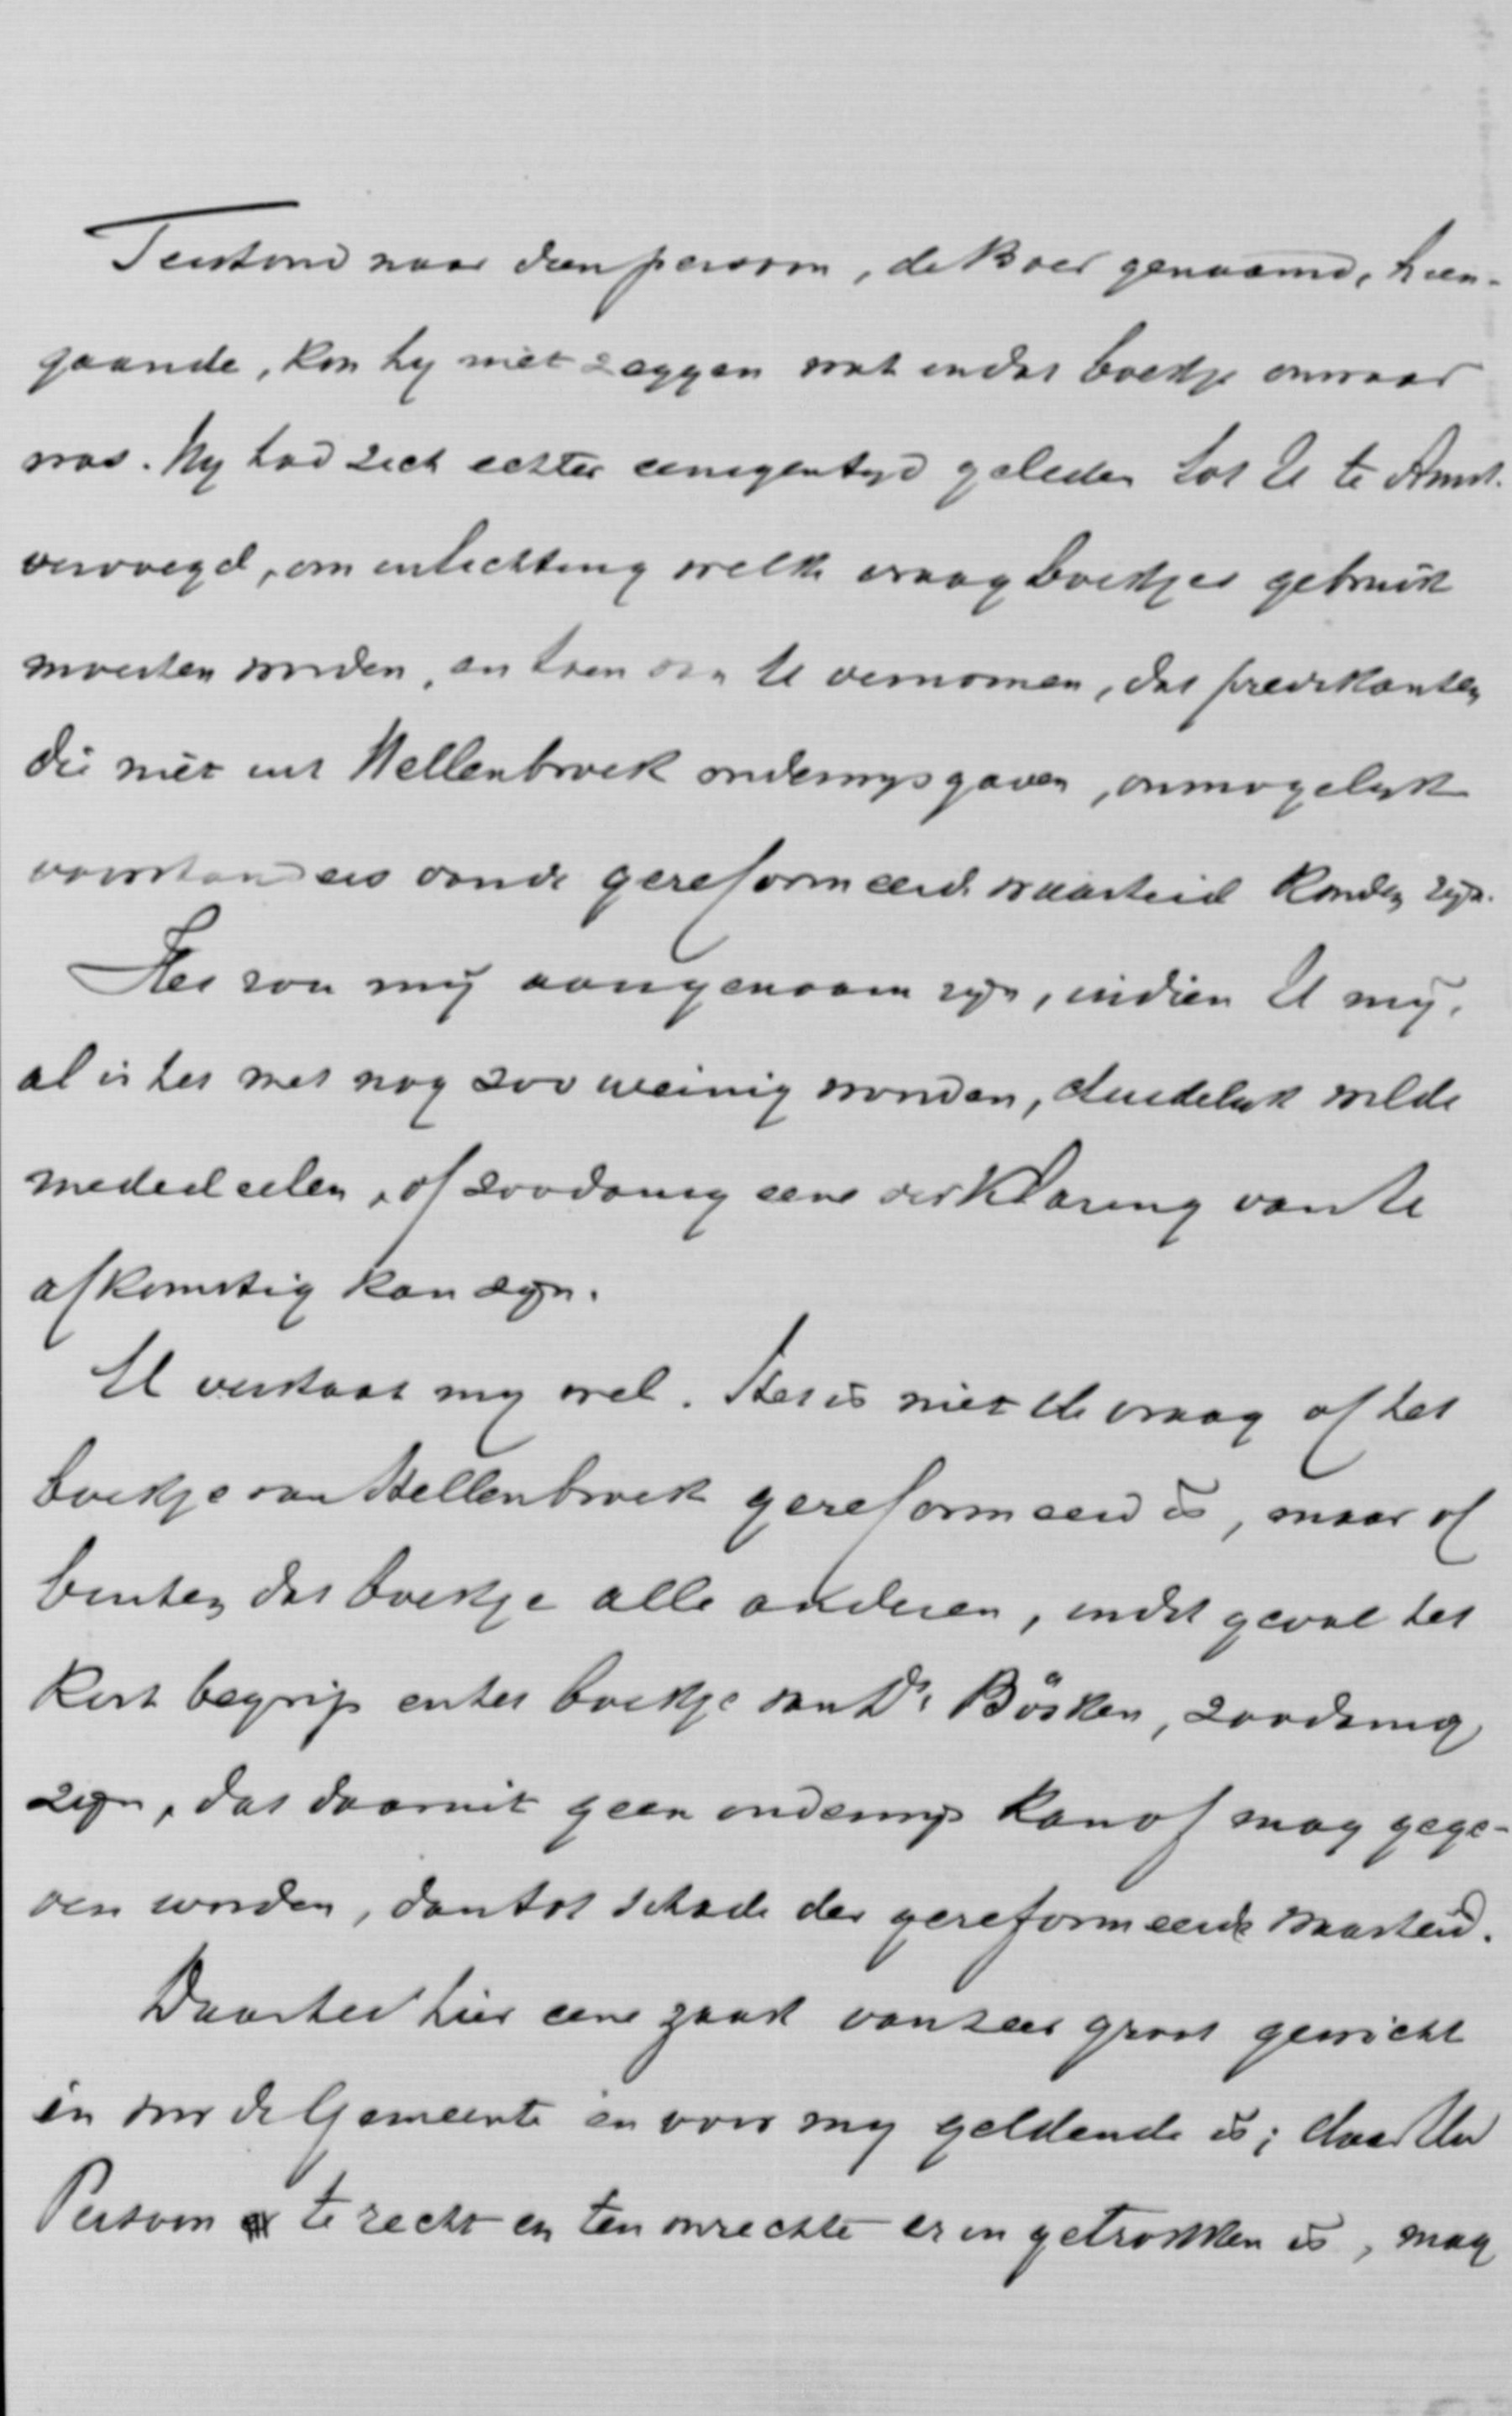 Terstond naar dien persoon, de Boer genaamd, heen-
gaande, kon hy niet zeggen wat in dat boekje onwaar
was. Hy had zich echter eenigen tyd geleden tot U te Amst.
vervoegd, om inlichting welke vraagboekjes gebruikt
moesten worden, en toen van U vernomen, dat predikanten
die niet uit Hellenbroek onderwys gaven, onmogelyk
voorstanders van de gereformeerde waarheid konden zyn.
Het zou mij aangenaam zyn, indien U mij,
al is het met nog zoo weinig woorden, duidelyk wilde
mededeelen, of zoodanig eene verklaring van U
afkomstig kan zyn.
U verstaat my wel. Het is niet de vraag of het
boekje van Hellenbroek gereformeerd is, maar of
buiten dat boekje alle anderen, in dit geval het
Kort begrip en het boekje van Ds. Böskén, zoodanig
zyn, dat daaruit geen onderwys kan of mag gege-
ven worden, dan tot schade der gereformeerde waarheid.
Daar het hier eene zaak van zeer groot gewicht
in voor de Gemeente en voor my geldende is; daar Uw
Persoon te recht en ten onrechte er in getrokken is, mag